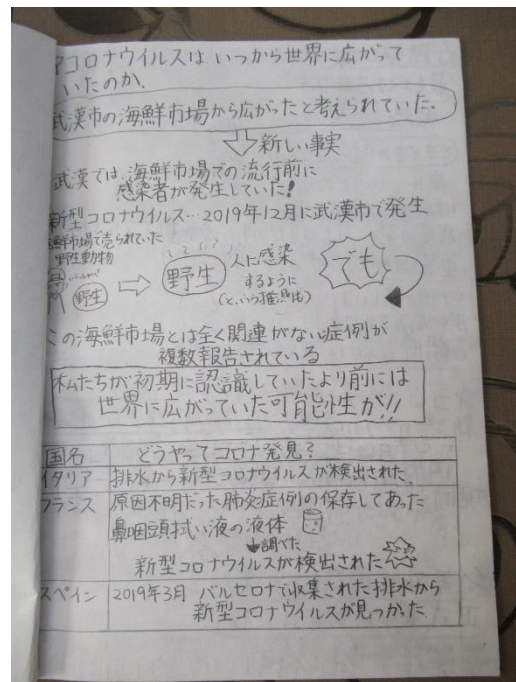 コロナウイルスは いつから世界に広がって
いたのか。
武漢市の海鮮市場から広がったと考えられていた。
新しい事実
武漢では、海鮮市場での流行前に
感染者が発生していた!
新型コロナウイルス…2019年12月に武漢市で発生
鮮市場で売られていた
野生動物
野生
野生
人に感染
するように
(という推測も)
でも
この海鮮市場とは全く関連がない症例が
複数報告されている
私たちが初期に認識していたより前には
世界に広がっていた可能性が!!
国名 どうやってコロナ発見?
イタリア 排水から新型コロナウイルスが検出された。
フランス 原因不明だった肺炎症例の保存してあった
鼻咽頭拭い液の液体
調べた
新型コロナウイルスが検出された
スペイン 2019年3月 バルセロナで収集された排水から
新型コロナウイルスが見つかった